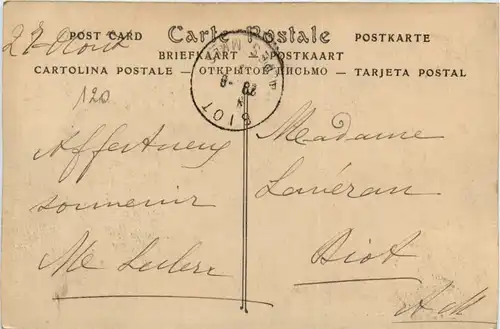 27 Aout
POST CARD Carte Postale POSTKARTE
BRIEFKAART POSTKAART
CARTOLINA POSTALE — ОТКРЫТОЕ ПИСЬМО — TARJETA POSTAL
120
BIOT
28 - 8
Affectueux
souvenir
Me Leclerc
Madame
Lavéran
Biot
A M